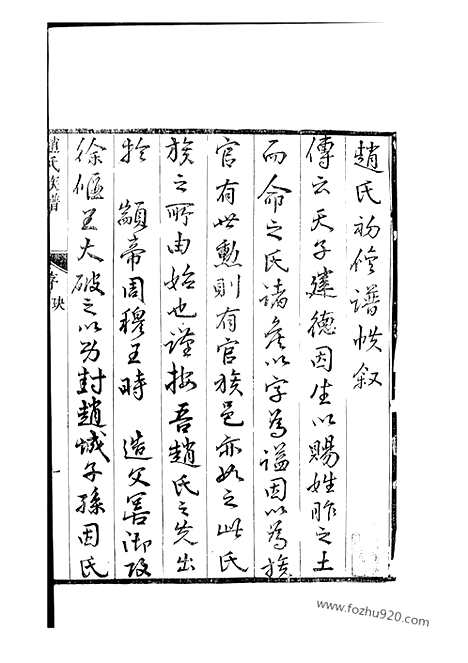 趙氏初修譜帙叙
傳云天子建德因生以賜姓胙之土
而命之氏諸矦以字為謚因以為族
官有世勲則有官族邑亦如之此氏
族之所由始也謹按吾趙氏之先出
於 顓帝周穆王時 造父善御攻
徐偃王大破之以功封趙城子孫因氏
趙氏族譜
序
一
www.fozhu920.com